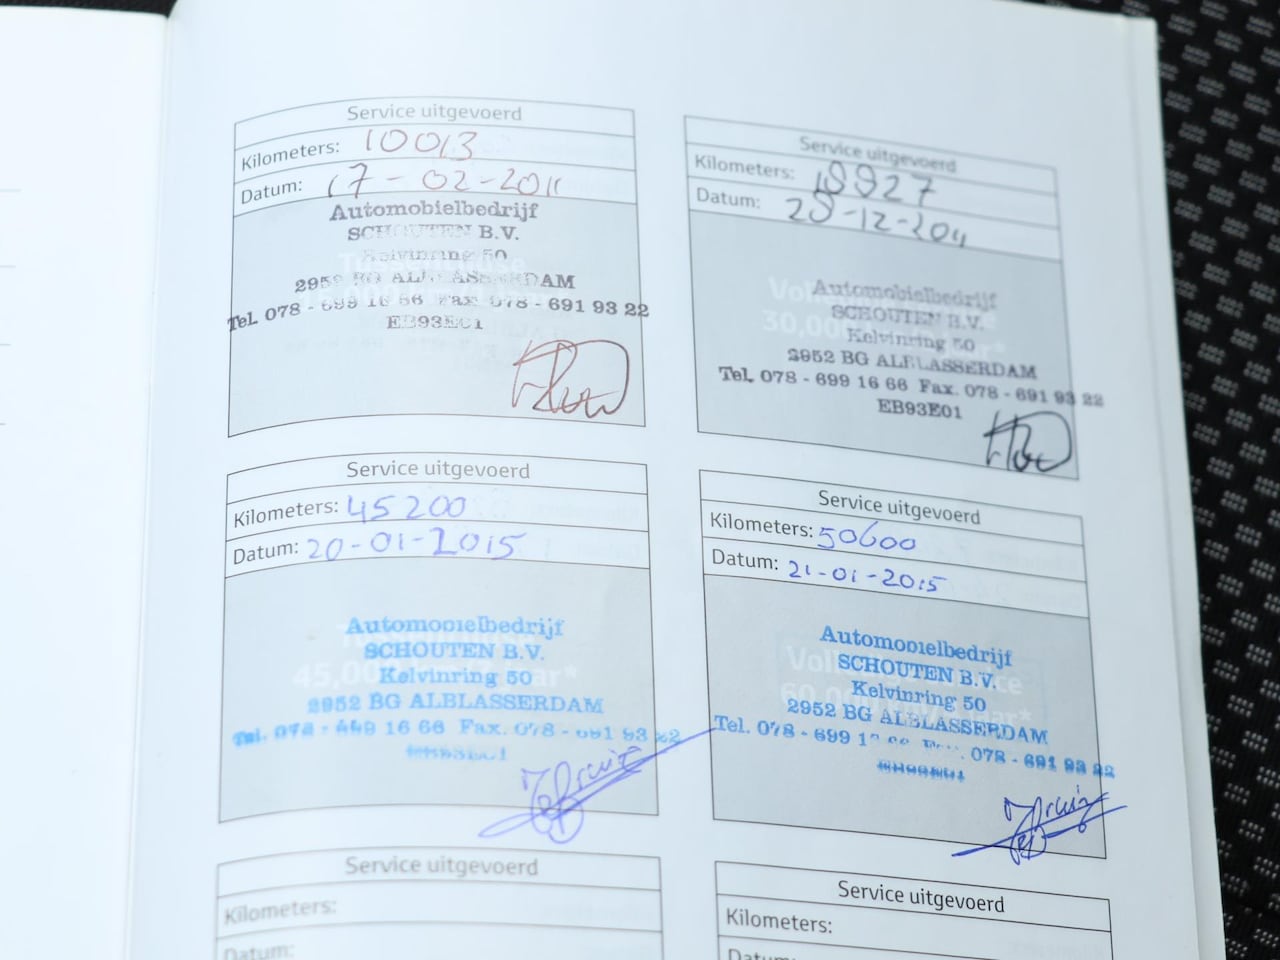 Service uitgevoerd
Kilometers: 10013
Datum: 17-02-2011
Automobielbedrijf
SCHOUTEN B.V.
Kelvinring 50
2952 BG ALBLASSERDAM
Tel. 078 - 699 16 66 Fax. 078 - 691 93 22
EB93E01
Service uitgevoerd
Kilometers: 18927
Datum: 28-12-2011
Automobielbedrijf
SCHOUTEN B.V.
30,000
Kelvinring 50
2952 BG ALBLASSERDAM
Tel. 078 - 699 16 66 Fax. 078 - 691 93 22
EB93E01
Service uitgevoerd
Kilometers: 45200
Datum: 20-01-2015
Automobielbedrijf
SCHOUTEN B.V.
45,000 km/3 jaar*
Kelvinring 50
2952 BG ALBLASSERDAM
Tel. 078 - 699 16 66 Fax. 078 - 691 93 22
Service uitgevoerd
Kilometers: 50600
Datum: 21-01-2015
Automobielbedrijf
SCHOUTEN B.V.
Kelvinring 50
2952 BG ALBLASSERDAM
Tel. 078 - 699 078 - 691 93 22
Service uitgevoerd
Kilometers:
Datum:
Service uitgevoerd
Kilometers:
Datum: